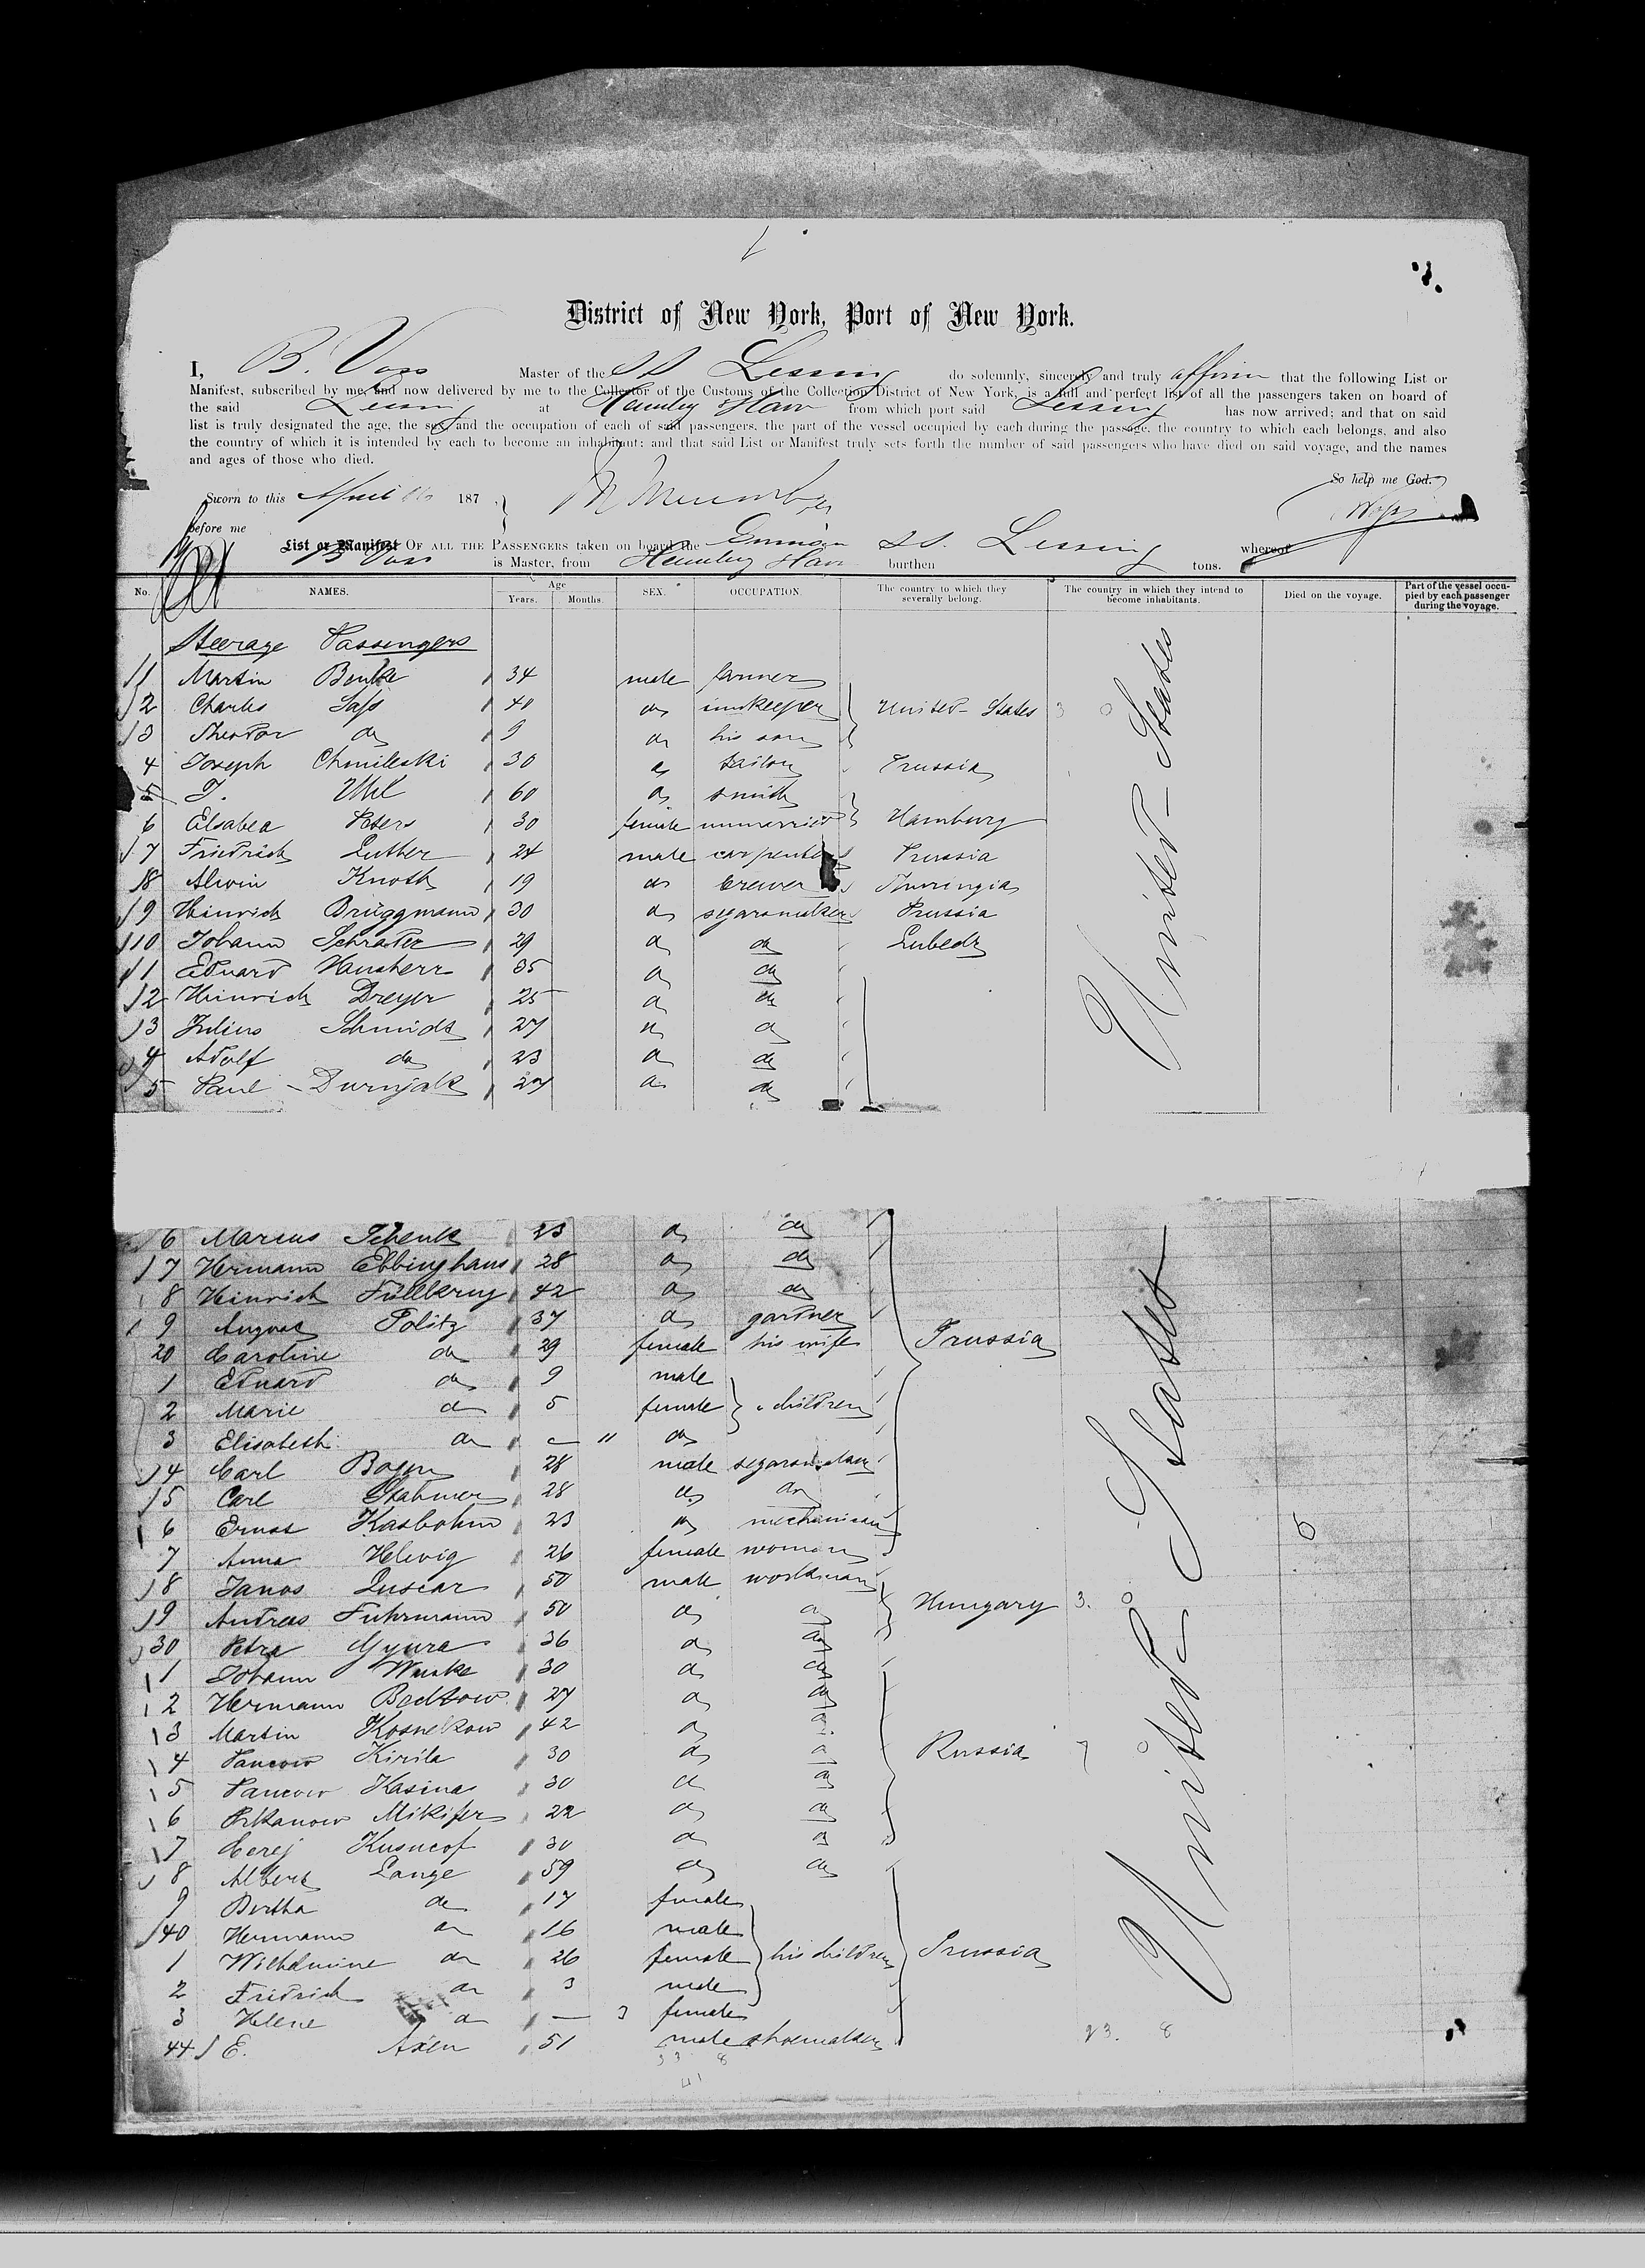 District of New York, Port of New York.
I, B. Voss Master of the SS Lessing do solemnly, sincerely and truly affirm that the following List or
Manifest, subscribed by me, and now delivered by me to the Collector of the Customs of the Collection District of New York, is a full and perfect list of all the passengers taken on board of
the said Lessing at Hamburg & Havre from which port said Lessing has now arrived; and that on said
list is truly designated the age, the sex and the occupation of each of said passengers, the part of the vessel occupied by each during the passage, the country to which each belongs, and also
the country of which it is intended by each to become an inhabitant; and that said List or Manifest truly sets forth the number of said passengers who have died on said voyage, and the names
and ages of those who died.
So help me God.
Sworn to this April 187
before me
List or Manifest OF ALL THE PASSENGERS taken on board the German SS. Lessing whereof
B Voss is Master, from burthen tons.
No. NAMES. Age Years. Months. SEX. OCCUPATION. The country to which they severally belong. The country in which they intend to become inhabitants. Died on the voyage. Part of the vessel occupied by each passenger during the voyage.
Steerage Passengers
1 Martin Benke 34 male farmer
2 Charles Sass 40 do innkeeper United States
3 Theodor do 9 do his son
4 Joseph Chmileski 30 do tailor Prussia
5 T. Uhl 60 do smith
6 Elsabea Peters 30 female unmarried Hamburg
7 Friedrich Luther 24 male carpenter Prussia
8 Alwin Knoth 19 do brewer Thuringia
9 Heinrich Brüggmann 30 do segarmaker Prussia
10 Johann Schrader 29 do do Lubeck
1 Eduard Hausherr 35 do do
2 Heinrich Dreyer 25 do do
3 Julius Schmidt 27 do do
4 Adolf do 23 do do
5 Paul Durnjack 27 do do
United States
6 Marcus Schenk 23 do do
7 Hermann Ebbinghaus 28 do do
8 Heinrich Füllkrug 42 do do
9 August Politz 37 do gardner
20 Caroline do 29 female his wife Prussia
1 Eduard do 9 male
2 Marie do 5 female children
3 Elisabeth do — " do
4 Carl Bogen 28 male segarmaker
5 Carl Stahmer 28 do do
6 Ernst Kasbohm 23 do mechanican
7 Anna Helwig 26 female woman
8 Janos Luscar 50 male workman
9 Andreas Fuhrmann 50 do do Hungary 3. 0
30 Petra Gyura 36 do do
1 Johann Wuske 30 do do
2 Hermann Badtow 27 do do
3 Martin Kosnekow 42 do do
4 Pancow Kirila 30 do do Russia 7 0
5 Pancow Kasina 30 do do
6 Mikifer 22 do do
7 Cerej Kusneof 30 do do
8 Albert Lange 59 do do
9 Bertha do 17 female
40 Hermann do 16 male
1 Wilhelmine do 26 female his children Prussia
2 Fridrich do 3 male
3 Helene do — 3 female
44 E. Axen 51 male shoemaker
23. 8
33 8
41
United States